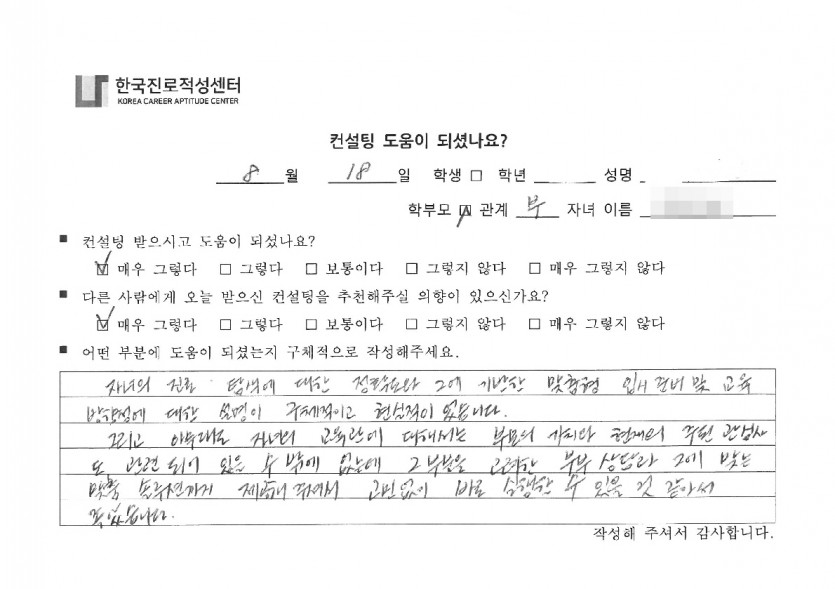 한국진로적성센터
KOREA CAREER APTITUDE CENTER
컨설팅 도움이 되셨나요?
8 월 18 일 학생 □ 학년 성명
학부모 ☑ 관계 부 자녀 이름
■ 컨설팅 받으시고 도움이 되셨나요?
☑ 매우 그렇다 □ 그렇다 □ 보통이다 □ 그렇지 않다 □ 매우 그렇지 않다
■ 다른 사람에게 오늘 받으신 컨설팅을 추천해주실 의향이 있으신가요?
☑ 매우 그렇다 □ 그렇다 □ 보통이다 □ 그렇지 않다 □ 매우 그렇지 않다
■ 어떤 부분에 도움이 되셨는지 구체적으로 작성해주세요.
자녀의 진로 탐색에 대한 정확도와 그에 기반한 맞춤형 입시 준비 및 교육
방향성에 대한 설명이 구체적이고 현실적이었습니다.
그리고 아무래도 자녀의 교육관에 대해서는 부모의 가치와 현재의 주된 관심사
도 관련되어 있을 수 밖에 없는데 그 부분을 고려한 부부 상담과 그에 맞는
맞춤 솔루션까지 제공해 주셔서 고민없이 바로 실행할 수 있을 것 같아서
좋았습니다.
작성해 주셔서 감사합니다.